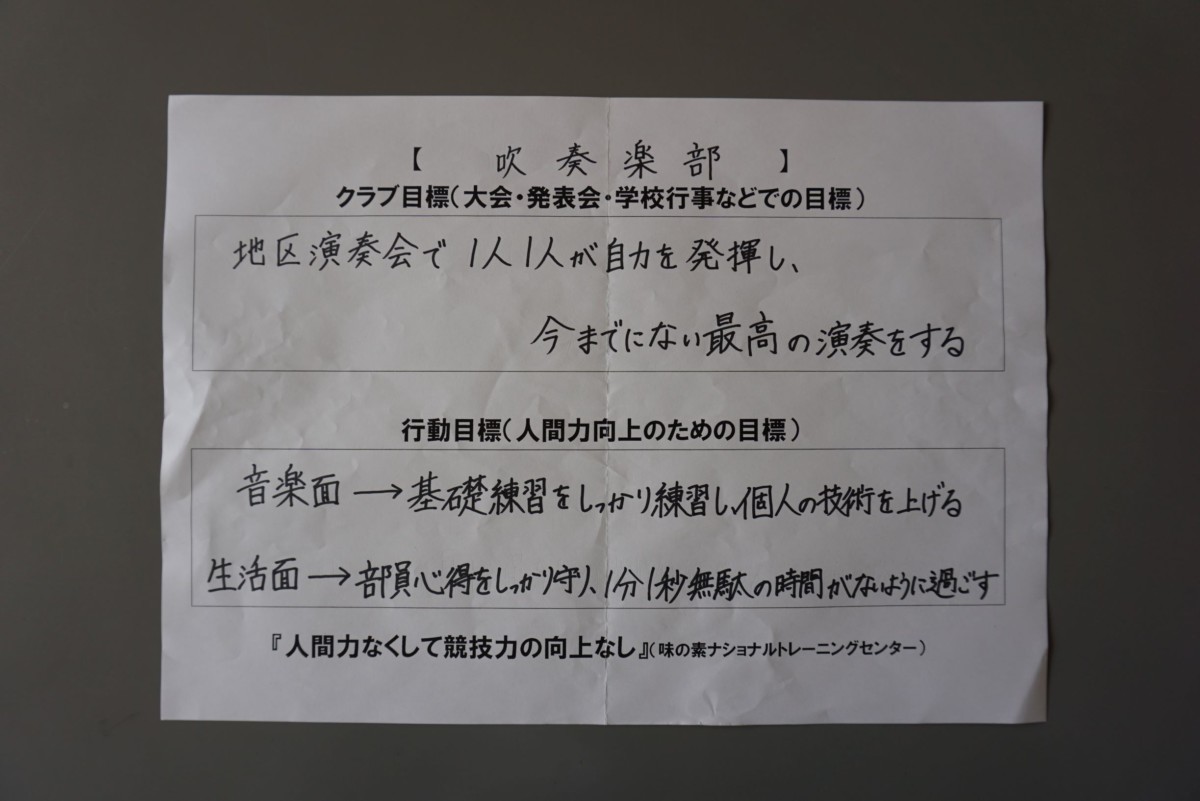 【 吹奏楽部 】
クラブ目標(大会・発表会・学校行事などでの目標)
地区演奏会で1人1人が自力を発揮し、
今までにない最高の演奏をする
行動目標(人間力向上のための目標)
音楽面→基礎練習をしっかり練習し、個人の技術を上げる
生活面→部員心得をしっかり守り、1分1秒無駄の時間がないように過ごす
『人間力なくして競技力の向上なし』(味の素ナショナルトレーニングセンター)